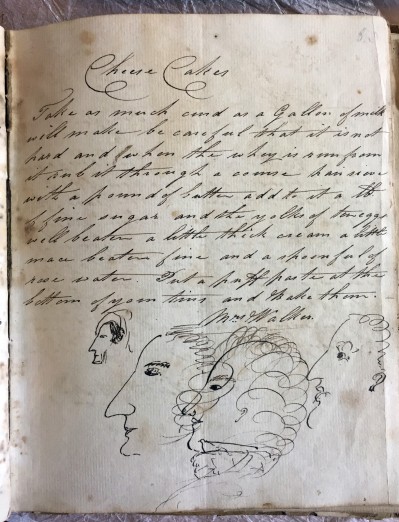 Cheese Cakes
Take as much curd as a Gallon of milk
will make be careful that it is not
hard and when the whey is run from
it rub it through a coarse hair sieve
with a pound of butter add to it a lb
of fine sugar and the yolks of ten eggs
well beaten a little thick cream a little
mace beaten fine and a spoonful of
rose water. Put a puff paste at the
bottom of your tins and bake them.
Mrs Walker.